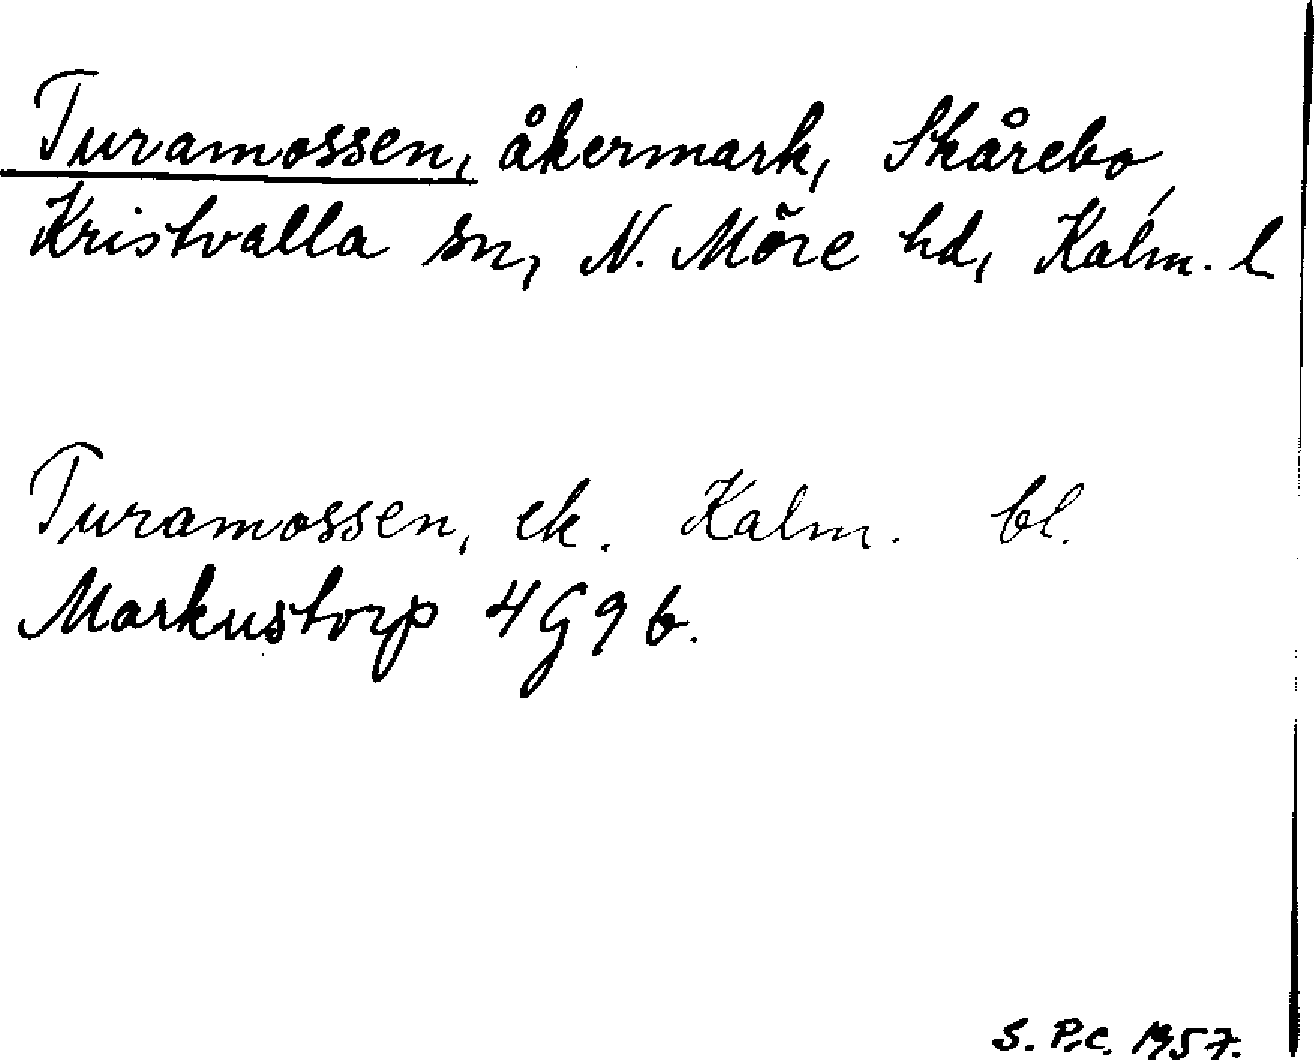 Turamossen, åkermark, Skårebo,
Kristvalla sn, N. Möre hd, Kalm. l
Turamossen, ek. Kalm. bl.
Markustorp 4G9b.
S. P.C. 1957.